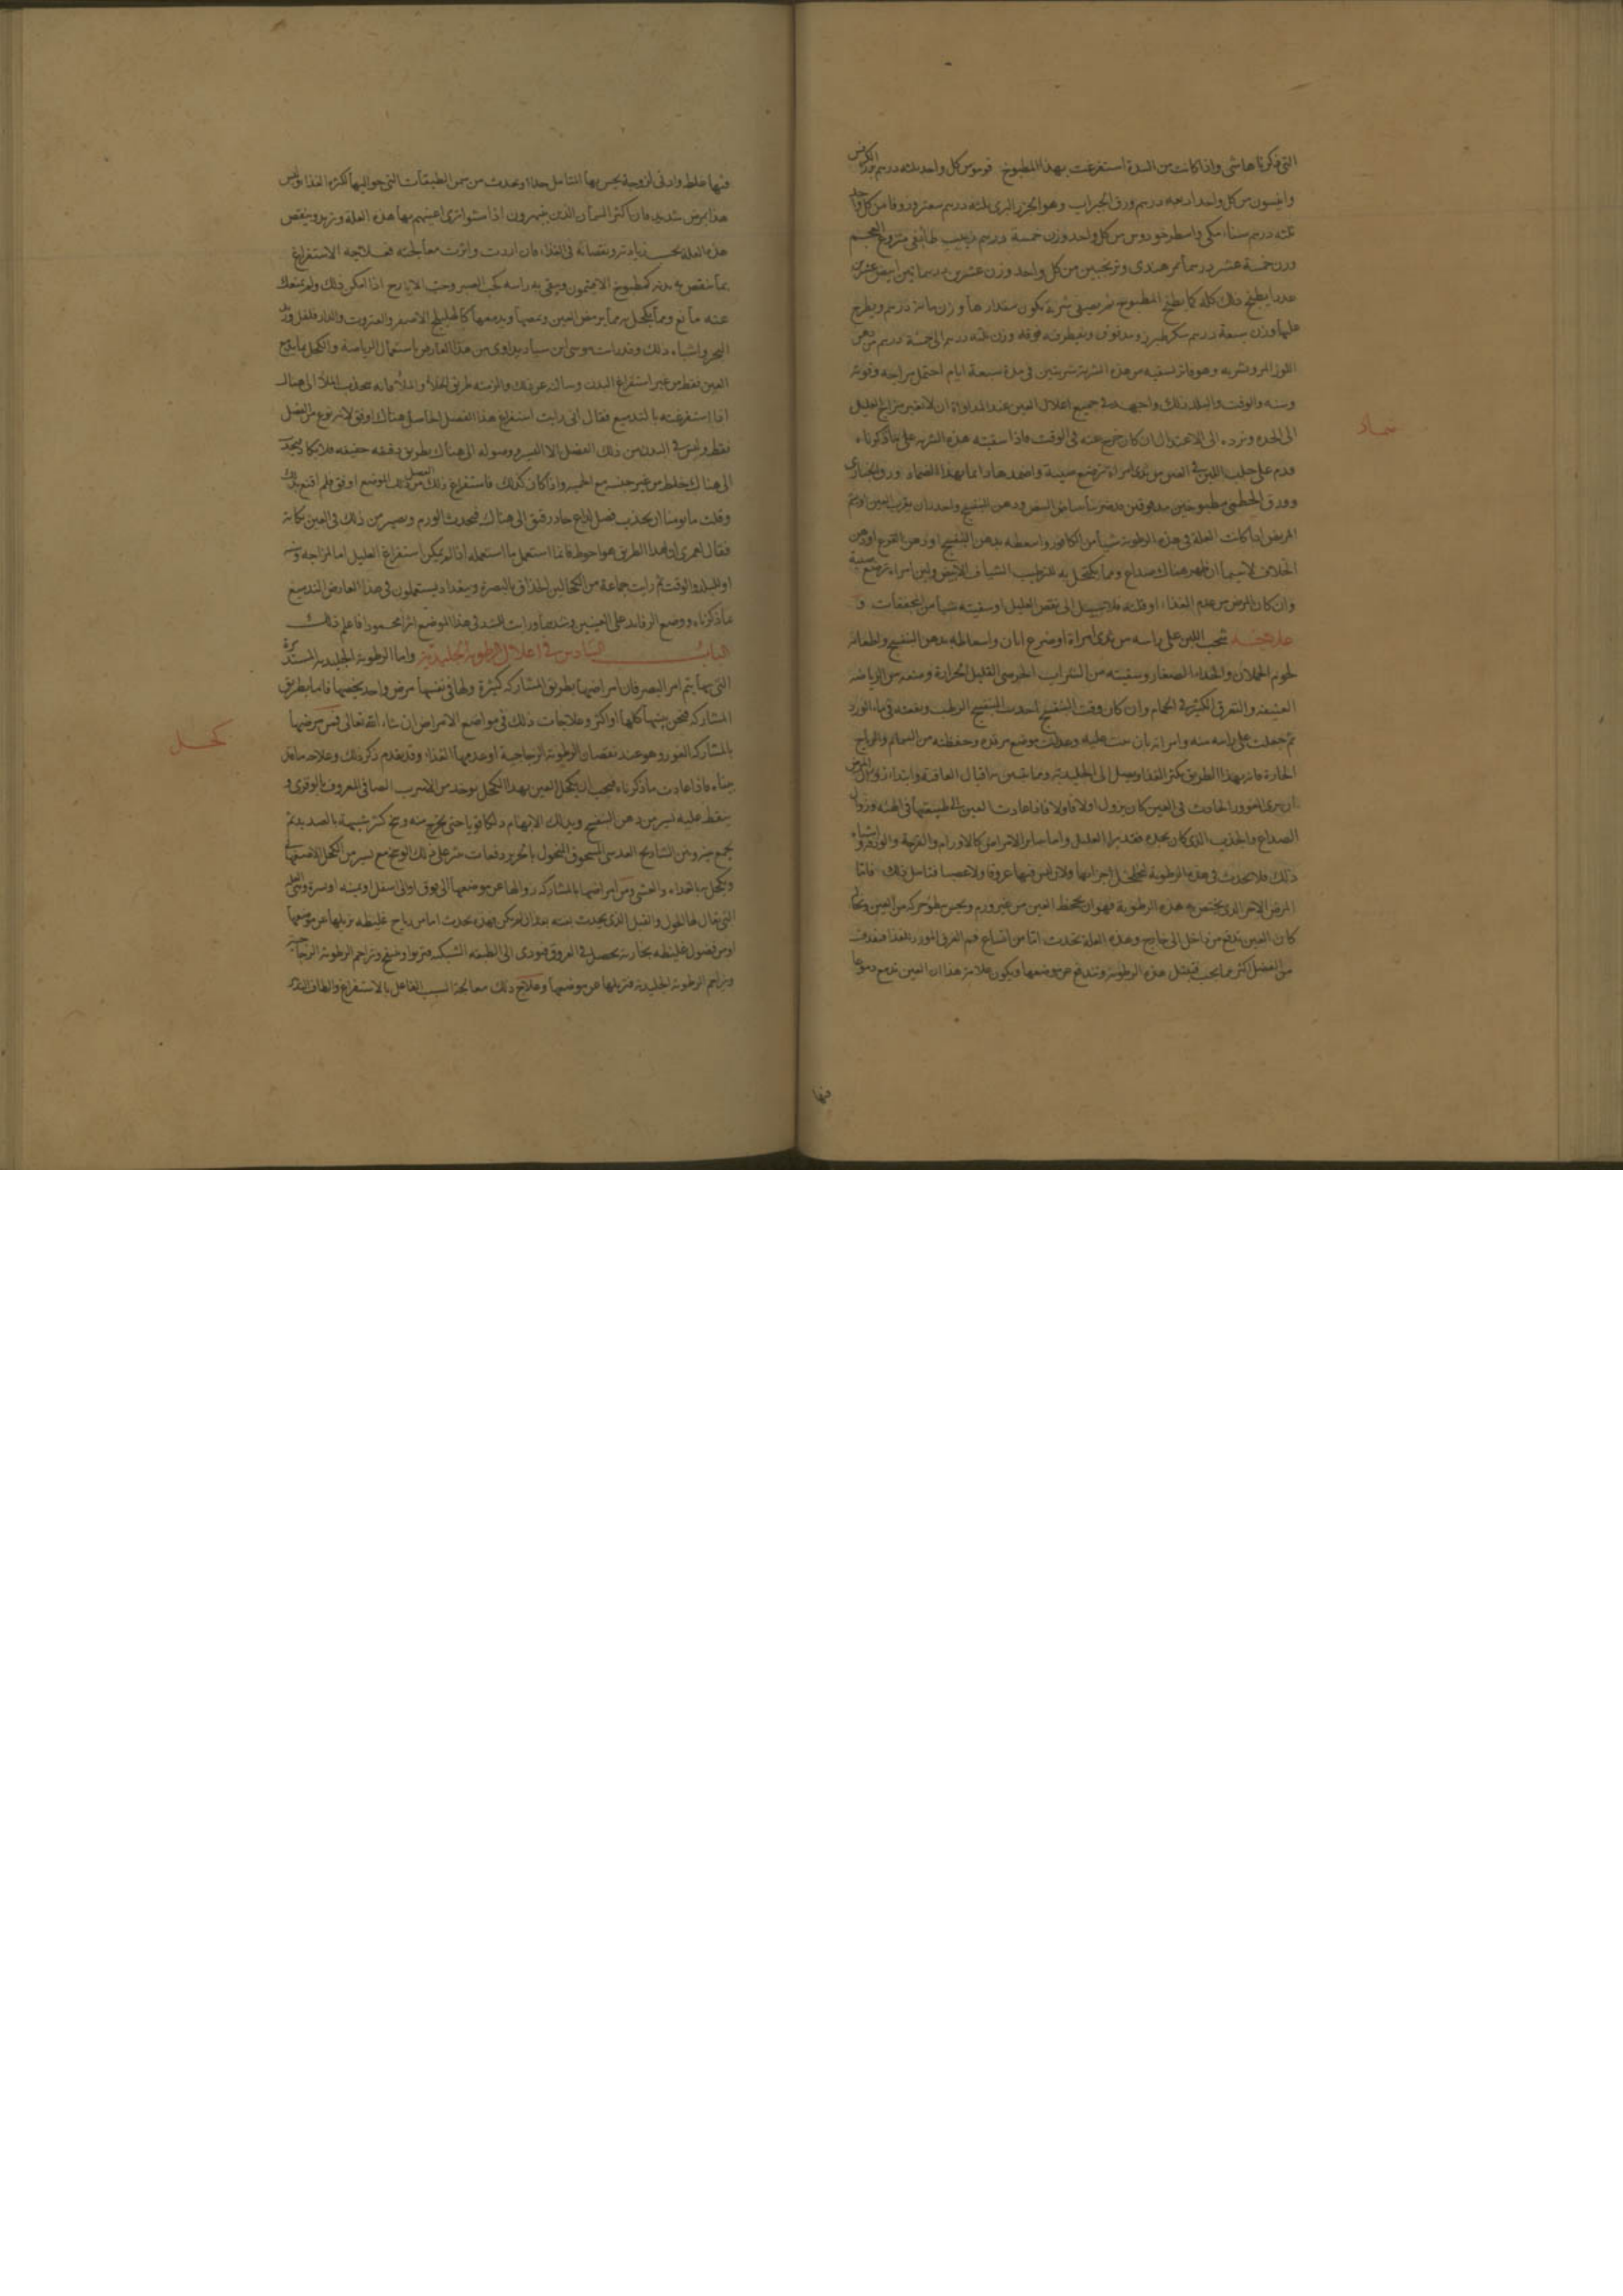 التى ذكرناها شى واذا كانت من السدة استفرغت بهذا المطبوخ
وانيسون من كل واحد اربعة درهم ورق وهو الجزر البرى ثلثة درهم سعتر وزوفا من كل واحد
ثلثة درهم سناء مكى واسطوخودوس من كل واحد وزن خمسة درهم زبيب طايفى منزوع العجم
وزن خمسة عشر درهما تمر هندى وترنجبين من كل واحد وزن عشرين درهما تين ابيض عشرين
عددا يطبخ ذلك كله كما يطبخ المطبوخ ثم يصفى شربة يكون مقدارها وزن مائة درهم ويطرح
عليها وزن سبعة درهم سكر طبرزد مدقوق ويقطر فوقه وزن ثلثة درهم الى خمسة درهم من دهن
اللوز المر وتشربه وهو فاتر تسقيه من هذه الشربة شربتين فى مدة سبعة ايام احتمل مزاجه وقوته
وسنه والوقت والبلد ذلك واجهد فى جميع اعلال العين عند المداواة ان لا تغير مزاج العليل
الى الحدة وترده الى الاعتدال ان كان خرج عنه فى الوقت فاذا سقيته هذه الشربة على ما ذكرناه
فدم على حلب اللبن فى العين من ثدى امراة ترضع صبية واضمدها دائما بهذا الضماد ورق الخبازى
ضماد
وورق الخطمى مطبوخين مدقوقين ببياض البيض ودهن البنفسج
المريض اذا كانت العلة فى هذه الرطوبة شيا من الكافور واسعطه بدهن البنفسج او دهن القرع او دهن
الخلاف لا سيما ان ظهر هناك صداع ومما يكتحل به للترطيب الشياف الابيض ولبن امراة ترضع صبية
وان كان المرض من عدم الغذاء او قلته فلا سبيل الى نقص العليل او سقيته شيا من المجففات و
علاجه يحلب اللبن على راسه من ثدى امراة او ضرع اتان واسعاطه بدهن البنفسج واطعامه
لحوم الحملان والجداء الصغار وسقيته من الشراب القليل الحرارة ومنعه من الرياضة
العنيفة والتعرق الكثير فى الحمام وان كان وقت البنفسج اخذت البنفسج الرطب ونقعته فى ماء الورد
ثم جعلت على راسه منه وامرته بان يبيت عليه وعدلت موضع مرقده وحفظته من السمايم والرياح
الحارة فانه بهذا الطريق يكثر الغذا ويصل الى الجليدية ومما يتبين به اقبال العافية وابتداء زوال المرض
ان يرى الغوور الحادث فى العين كان يزول اولا فاولا فاذا عادت العين الى طبيعتها فى الهيئة وزوال
الصداع والجذب الذى كان يجده فقد برا العليل واما ساير الامراض كالاورام والقرحة
ذلك فلا يحدث فى هذه الرطوبة لتخلخل اجزائها ولان ليس فيها عروقا ولا عصبا فتامل ذلك فاما
المرض الاخر الذى يختص به هذه الرطوبة فهو ان تجحظ العين من غير ورم
كان العين تدفع من داخل الى خارج وهذه العلة تحدث اما من اتساع فم العرق المورد للغذا
من الفضل اكثر مما يجب فتمتلى هذه الرطوبة وتندفع عن موضعها ويكون علامة هذا ان العين تدمع دموعا
فيها
فيها غلظ وادنى لزوجة يحس بها المتامل جدا او يحدث من سمن الطبقات التى حواليها لكثرة الغذا وليس
هذا بمرض شديد فان اكثر السمان الذين يضمرون اذا استوا ترى اعينهم بها هذه العلة وتزيد وينقص
هذه العلة بحسب زيادته ونقصانه فى الغذا فان اردت واثرت معالجته فعلاجه الاستفراغ
بما ينقص به بدنه كمطبوخ الافيثمون وينقى به راسه كحب الصبر وحب الايارج اذا امكن ذلك ولم يمنعك
عنه مانع ومما يكتحل به مما يرمض العين ويمصها ويدمعها كالهليلج الاصفر والعنزروت والدار فلفل وزبد
البحر واشباه ذلك وقد رايت موسى ابن سيار يداوى من هذا العارض باستعمال الرياضة والكحل بما يدمع
العين فقط من غير استفراغ البدن وسالته عن ذلك
اذا استفرغته بالتدميع فقال انى رايت استفراغ هذا الفضل الحاصل هناك اوفق لانه نوع من الفضل
فقط وليس فى البدن من ذلك الفضل الا اليسير ووصوله الى هناك بطريق دقيقة خفيفة فلا يكاد
الى هناك خلط من غير جنسه مع واذا كان كذلك فاستفراغ ذلك الفضل من ذلك الموضع اوفق فلم اقنع بذلك
وقلت ما يومننا ان يجذب فضل لذاع حاد رقيق الى هناك فيحدث الورم ويصير من ذلك فى العين نكاية
فقال لعمرى ان هذا الطريق هو احوط فانما استعمل ما استعمله اذا لم يمكن استفراغ العليل اما لمزاجه وسنه
او للبلد والوقت ثم رايت جماعة من الكحالين الحذاق بالبصرة وببغداد يستعملون فى هذا العارض التدميع
بما ذكرناه ووضع الرفايد على العينين وشدها ورايت للشد فى هذا الموضع اثرا محمودا فاعلم ذلك
الباب السادس فى اعلال الرطوبة الجليدية واما الرطوبة الجليدية المستديرة
التى بها يتم امر البصر فان امراضها بطريق المشاركة كثيرة ولها فى نفسها مرض واحد يخصها فاما بطريق
المشاركة فنحن نبينها كلها او اكثر وعلاجات ذلك فى مواضع الامراض ان شاء الله تعالى فمن مرضها
بالمشاركة الغوور وهو عند نقصان الرطوبة الزجاجية او عدمها الغذاء وقد تقدم ذكر ذلك وعلاجه
كحل
بيناه فاذا عادت ما ذكرناه فيجب ان يكحل العين بهذا الكحل يوخذ من الاسرب الصافى المعروف
ينقط عليه يسير من دهن البنفسج ويدلك بالابهام دلكا قويا حتى يخرج منه وسخ كثير شبيه بالصديد ثم
يجمع جزو من الشاذنج العدسى المسحوق المنخول بالحرير دفعات على ذلك الوسخ مع يسير من الكحل الاصفهانى
ويكحل به بالغداة والعشى ومن امراضها بالمشاركة زوالها عن موضعها الى فوق او الى اسفل او يمنه او يسرة
التى يقال لها الحول والقبل الذى يحدث بغتة بعد ان لم يكن فهذه يحدث اما من رياح غليظة تزيلها عن موضعها
او من فضول غليظة بخارية يحصل فى العروق فيودى الى الطبقة الشبكية فتربو وتنتفخ وتزاحم الرطوبة الزجاجية
وتزاحم الرطوبة الجليدية فتزيلها عن موضعها وعلاج ذلك معالجة السبب الفاعل بالاستفراغ والطاف التدبير